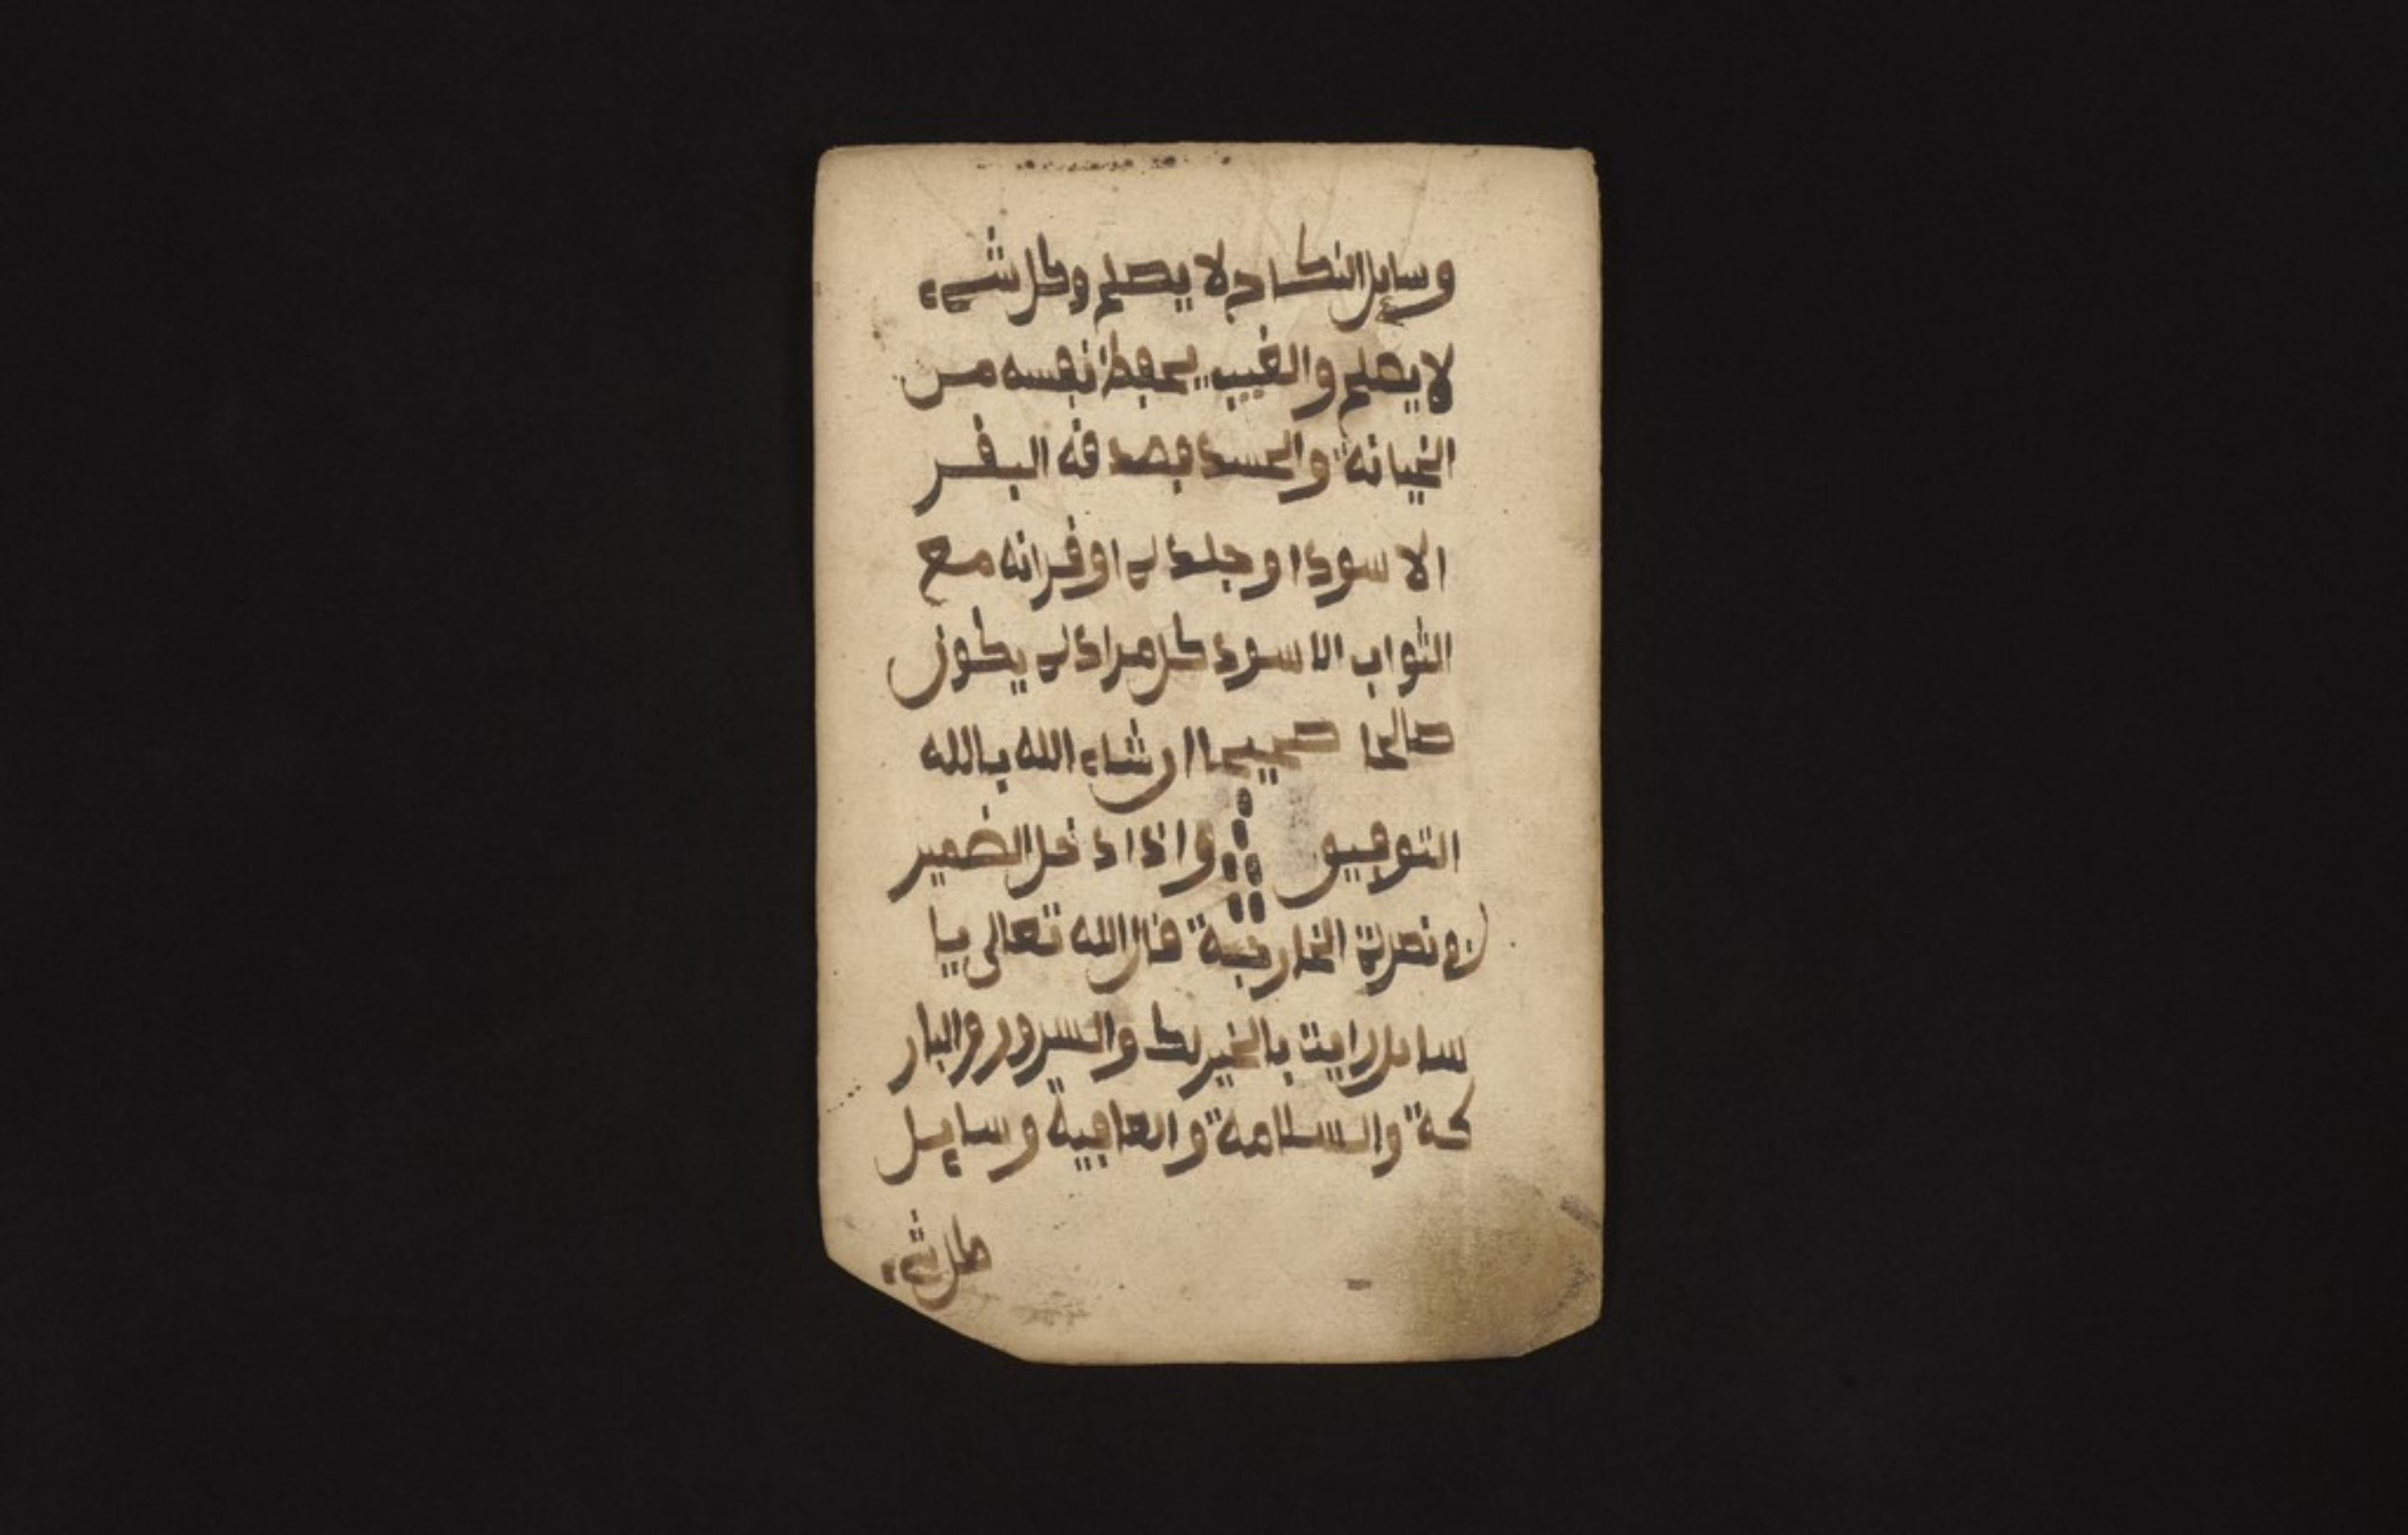 وسايل النكاح لا يصلح وكل شيء
لا يصلح والغيب يحفظ نفسه من
الخيانة والحسد فصدقه البقر
الاسود او جلده او قرانه مع
الثواب الاسود كل مراده يكون
صالحا صحيحا ان شاء الله بالله
التوفيق واذا دخل الضمير
في نصرة الخارجية قال الله تعالى يا
سايل رايت بالخير لك والسرور والبار
كة والسلامة والعافية وسايل
كل شيء